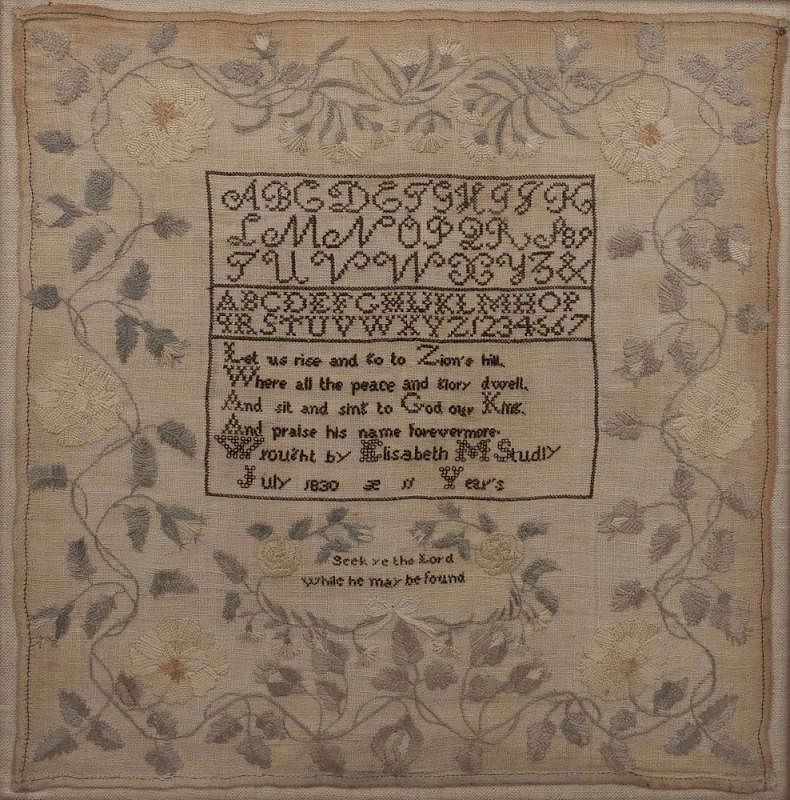 A B C D E F G H I J K
L M N O P Q R S 89
T U V W X Y Z &
ABCDEFGHIJKLMNOP
QRSTUVWXYZ1234567
Let us rise and go to Zion's hill.
Where all the peace and glory dwell.
And sit and sing to God our King.
And praise his name forevermore.
Wrought by Elisabeth M Studly
July 1830 æ 11 Year's
Seek ye the Lord
While he may be found